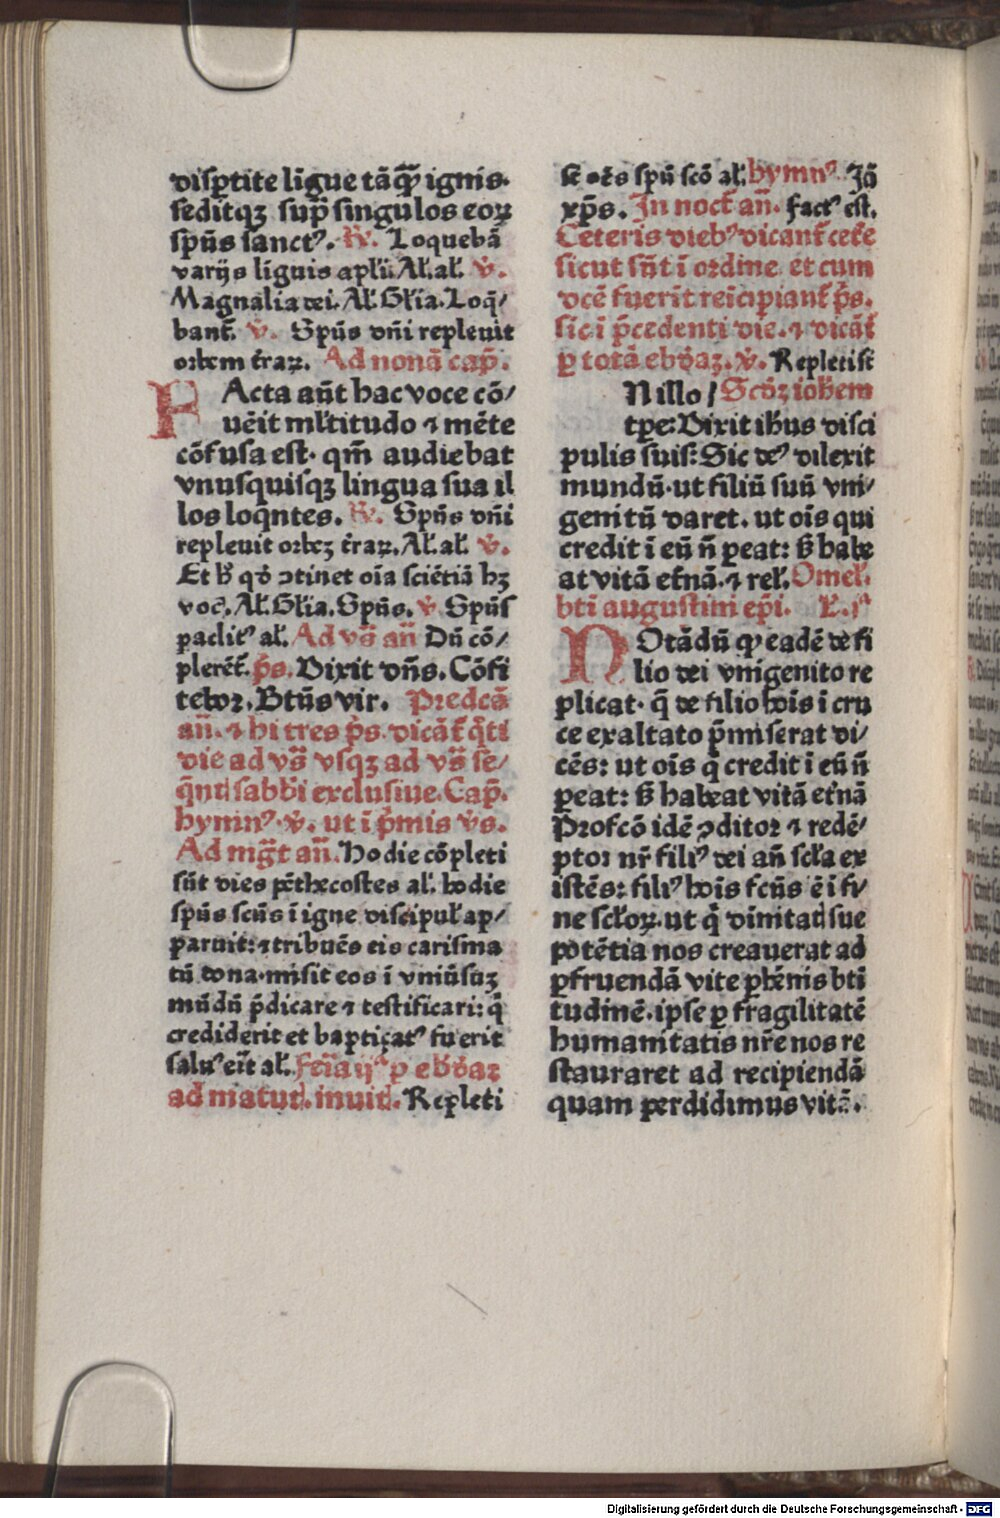 disꝑtite lingue tāq̄ꝫ ignis.
seditqꝫ sup̄ singulos eoꝝ
spūs sanctꝰ. R̄. Loquebā
varijs linguis apłi. Ał.ał. v̄.
Magnalia dei. Ał. Głia. Loq̄/
bant᷑. v̄. Spūs dn̄i repleuit
orbem t᷑raꝝ. Ad nonā cap̄.
FActa aūt hac voce cō/
uēit mltitudo ⁊ mēte
cōfusa est. qm̄ audiebat
vnusquisqꝫ lingua sua il
los loq̄ntes. R̄. Spūs dn̄i
repleuit orbeꝫ t᷑raꝝ. Ał.ał. v̄.
Et h̓ qd̓ ↄtinet oīa sciētiā hꝫ
voc̄. Ał. Głia. Spūs. v̄ Spūs
paclitꝰ ał. Ad vs̄ an̄ Dū cō/
plerēt᷑. p̄s. Dixit dn̄s. Cōfi
tebor. Btūs vir. Predcā
an̄. ⁊ hi tres p̄s. dicāt᷑ q̄ti
die ad vs̄ vsqꝫ ad vs̄ se/
q̄ntꝭ sabbi exclusiue. Cap̄.
hymnꝰ. v̄. ut ī p̄mis v̄s.
Ad mḡt an̄. Hodie cōpleti
sūt dies pēthecostes ał. hodie
spūs scūs ī igne discipuł ap/
paruit: ⁊ tribuēs eis carisma
tū dona. misit eos ī vniūsuꝫ
mūdū p̄dicare ⁊ testificari: q̄
crediderit et baptiçatꝰ fuerit
saluꝰ eīt ał. Fēia ijᵃ ꝑ ebdōaꝫ
ad matutꝭ. inuitꝭ. Repleti
st̄ oēs spū scō ał. hymnꝰ. Jā
xp̄s. In noct᷑ an̄. factꝰ est.
Ceteris diebꝰ dicant᷑ cet᷑e
sicut sūt ī ordine. et cum
dcē fuerīt reīcipiant᷑ p̄s.
sic ī p̄cedenti die. ⁊ dicāt᷑
ꝑ totā ebdōaꝫ. v̄. Repleti st̄
N illo / Scdꝫ iohem
tꝑe: Dixit ihus disci
pulis suis: Sic deꝰ dilexit
mundū. ut filiū suū vni/
genitū daret. ut oīs qui
credit ī eū n̄ peat: s̓ habe
at vitā et᷑nā. ⁊ reł. Omeł.
bti augustini ep̄i. L. jᵃ
NOtādū ꝙ eadē de fi
lio dei vnigenito re
plicat. q̄ de filio hoīs ī cru
ce exaltato p̄miserat di/
cēs: ut oīs q̄ credit ī eū n̄
peat: s̓ habeat vitā et᷑nā
Profcō idē ↄditor ⁊ redē/
ptor nr̄ filiꝰ dei an̄ scła ex
istēs: filiꝰ hoīs fcūs ē ī fi/
ne scłoꝝ. ut q̄ dīnitatꝭ sue
potētia nos creauerat ad
ꝑfruendā vite ꝑhēnis bti
tudinē. ipse ꝑ fragilitatē
humanitatis nr̄e nos re
stauraret ad recipiendā
quam perdidimus vitā.
Digitalisierung gefördert durch die Deutsche Forschungsgemeinschaft - DFG